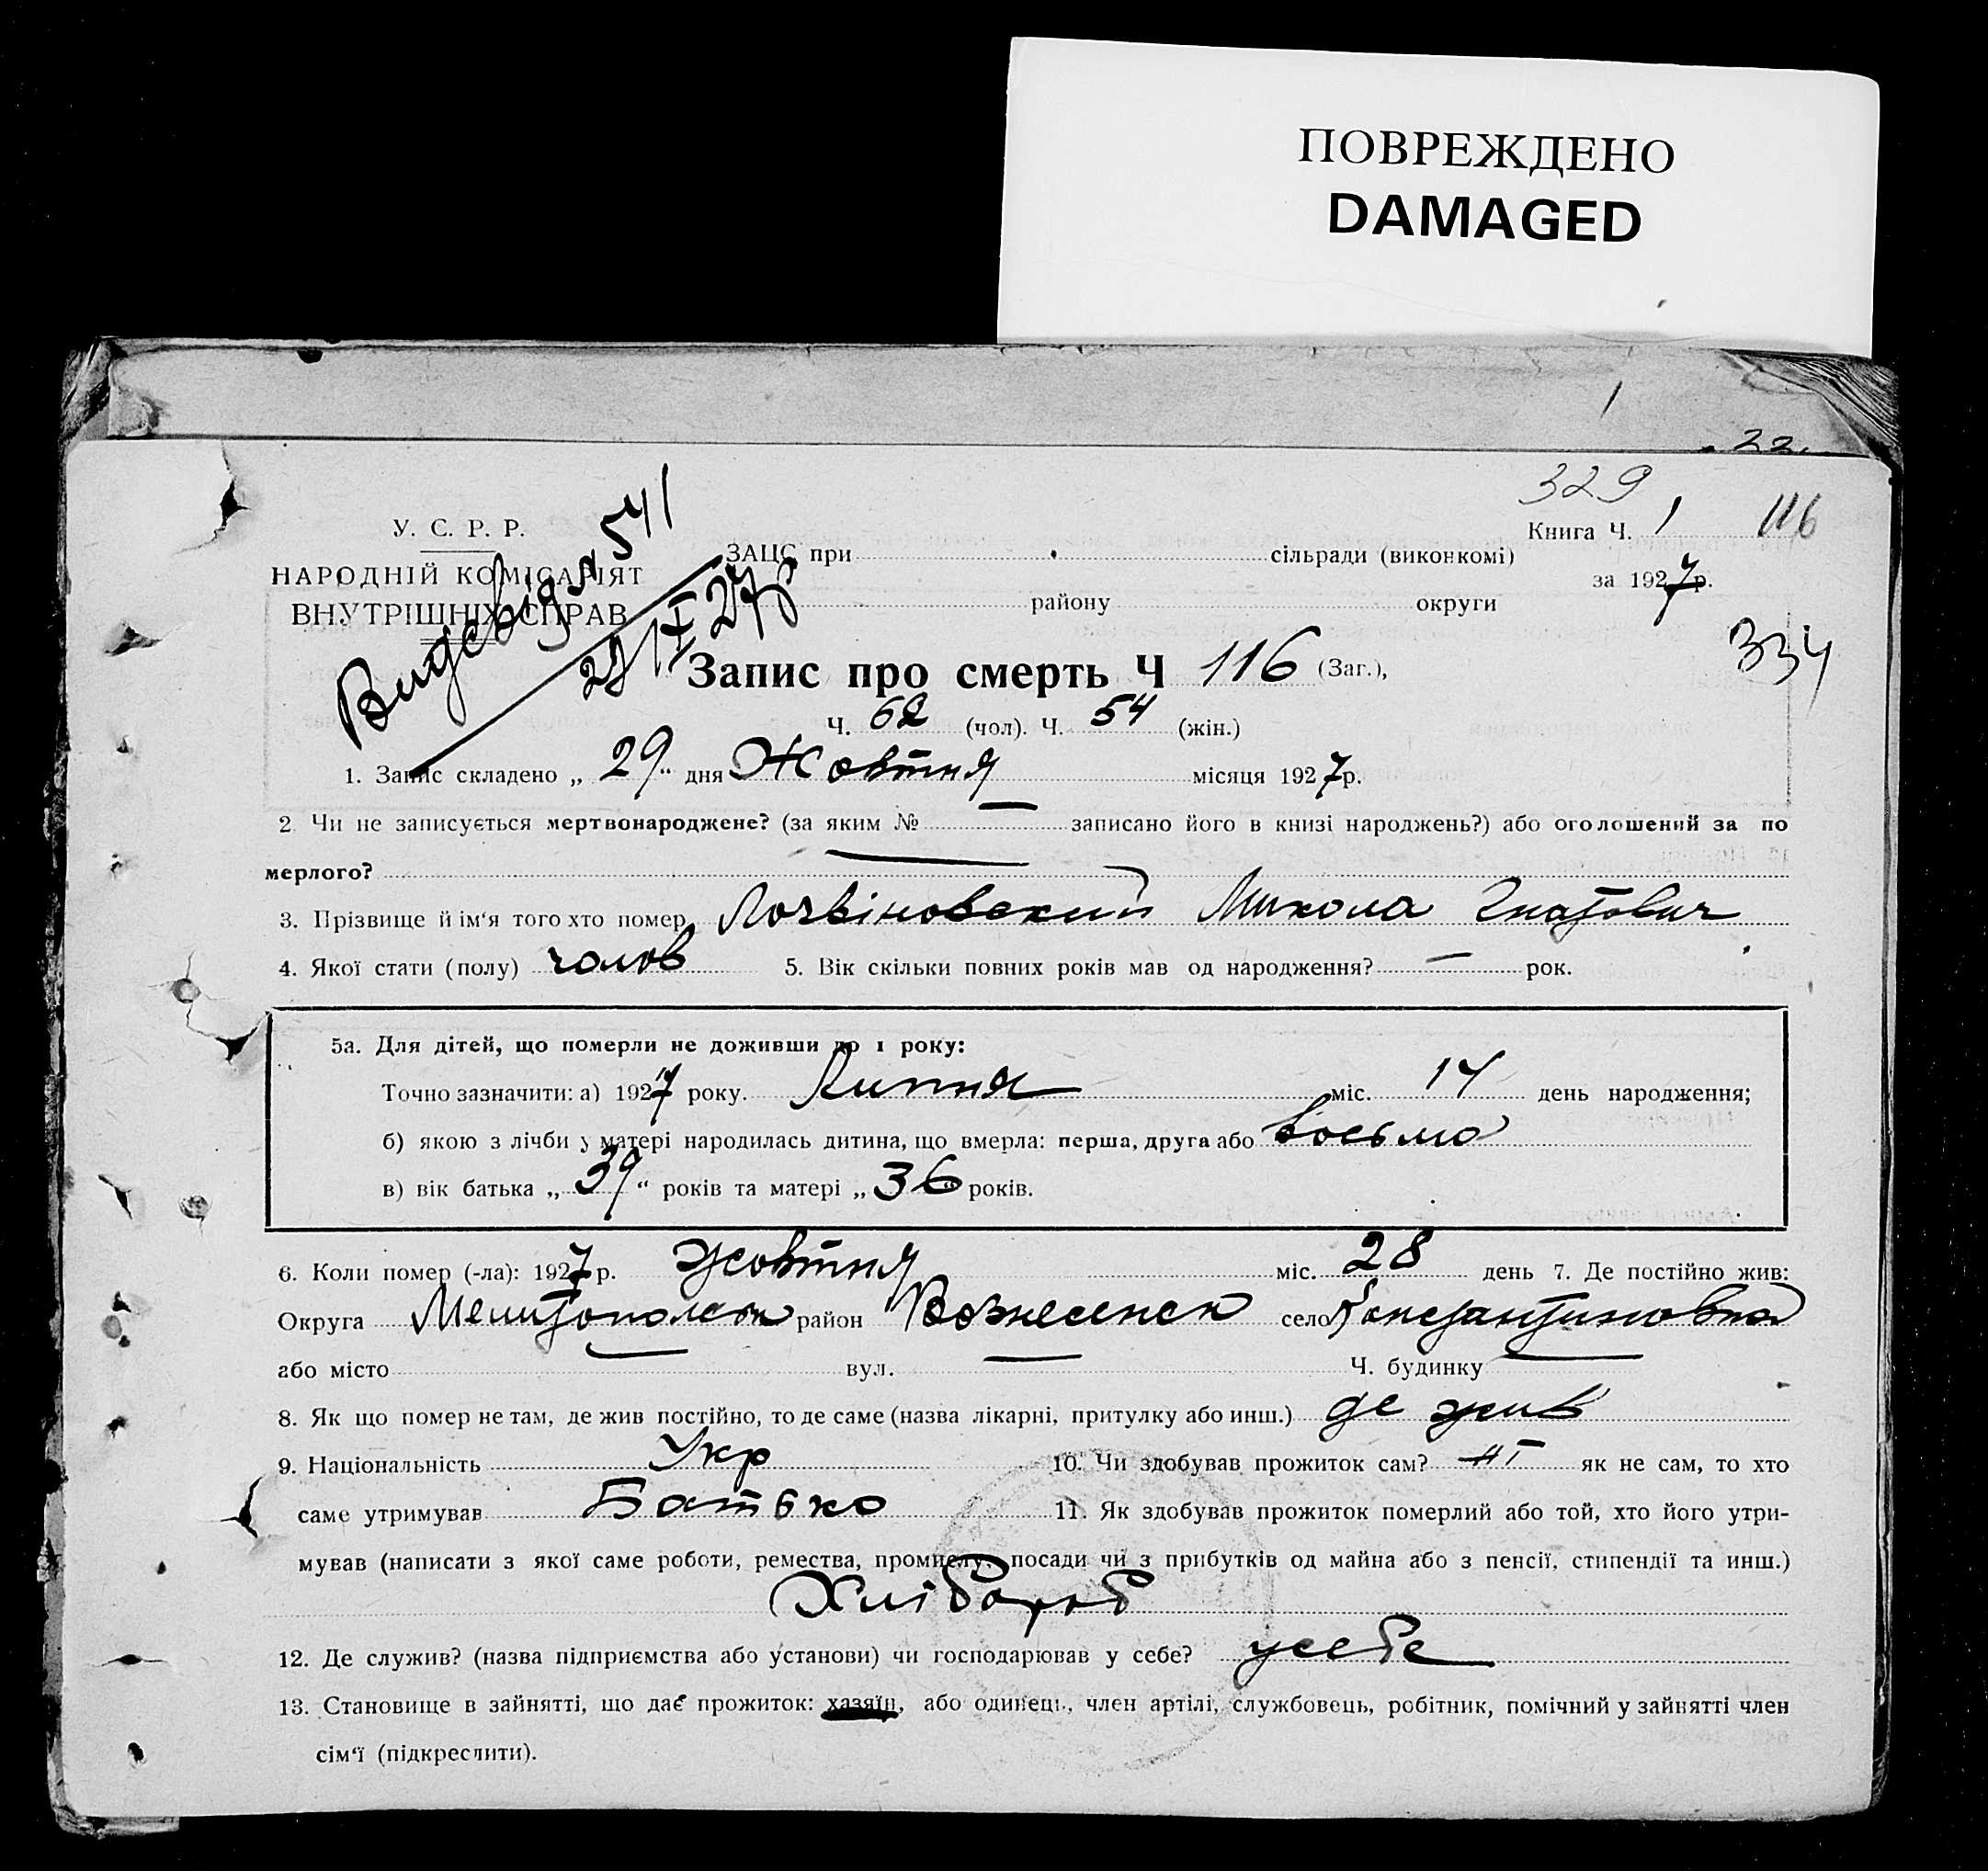 ПОВРЕЖДЕНО
DAMAGED
1
329
У. С. Р. Р.
Книга Ч. 1 116
НАРОДНІЙ КОМІСАРІЯТ
ВНУТРІШНІХ СПРАВ
ЗАЦС при сільради (виконкомі)
за 1927 р.
району округи
541
334
Запис про смерть Ч 116 (Заг.),
Ч. 62 (чол). Ч. 54 (жін.)
1. Запис складено „ 29 “ дня Жовтня місяця 1927 р.
2 Чи не записується мертвонароджене? (за яким № — записано його в книзі народжень?) або оголошений за по
мерлого? —
3. Прізвище й ім‘я того хто помер Логвіновский Микола Гнатович
4. Якої стати (полу) чолов 5. Вік скільки повних років мав од народження? — рок.
5а. Для дітей, що померли не доживши до 1 року:
Точно зазначити: а) 1927 року. Липня міс. 14 день народження;
б) якою з лічби у матері народилась дитина, що вмерла: перша, друга або восьма
в) вік батька „ 39 “ років та матері „ 36 “ років.
6. Коли помер (-ла): 1927 р. жовтня міс. 28 день 7. Де постійно жив:
Округа Мелитопольськ район Вознесенськ село Константиновка
або місто — вул. — Ч. будинку —
8. Як що помер не там, де жив постійно, то де саме (назва лікарні, притулку або инш.) де жив
9. Національність Укр 10. Чи здобував прожиток сам? ні як не сам, то хто
саме утримував Батько 11. Як здобував прожиток померлий або той, хто його утри-
мував (написати з якої саме роботи, ремества, промислу, посади чи з прибутків од майна або з пенсії, стипендії та инш.)
Хлібороб
12. Де служив? (назва підприємства або установи) чи господарював у себе? у себе
13. Становище в зайнятті, що дає прожиток: хазяїн, або одинець, член артілі, службовець, робітник, помічний у зайнятті член
сім‘ї (підкреслити).